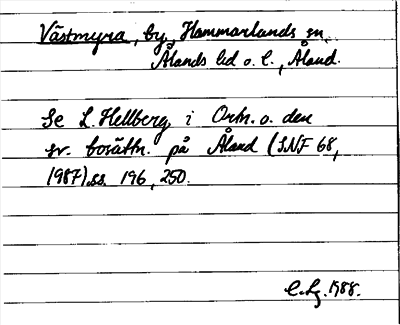 Västmyra, by, Hammarlands sn,
Ålands lid o. l., Åland.
Se L. Hellberg i Ortn. o. den
sv. bosättn. på Åland (SNF 68,
1987), ss. 196, 250.
1988.